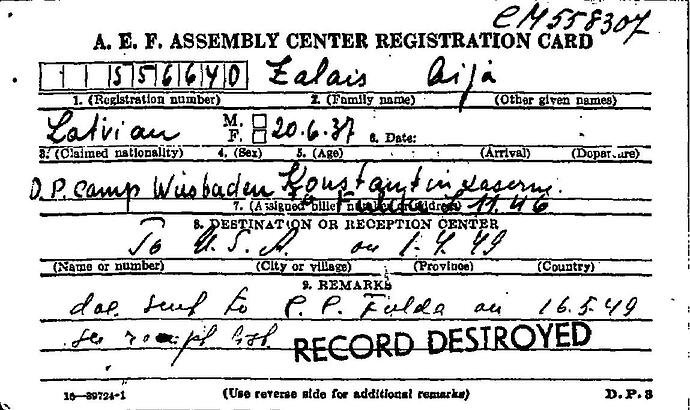 CM558307
A. E. F. ASSEMBLY CENTER REGISTRATION CARD
1 1 5 5 6 6 4 0 Zalais Aija
1. (Registration number) 2. (Family name) (Other given names)
Latvian M. F. 20.6.37 6. Date:
3. (Claimed nationality) 4. (Sex) 5. (Age) (Arrival) (Departure)
D.P. Camp Wiesbaden Konstantin Kaserne
7. (Assigned billet number or address) Fulda 11.46
8. DESTINATION OR RECEPTION CENTER
To U.S.A. on 1.4.49
(Name or number) (City or village) (Province) (Country)
9. REMARKS
doc. sent to P.P. Fulda on 16.5.49
see
RECORD DESTROYED
16—39724-1 (Use reverse side for additional remarks) D.P.3